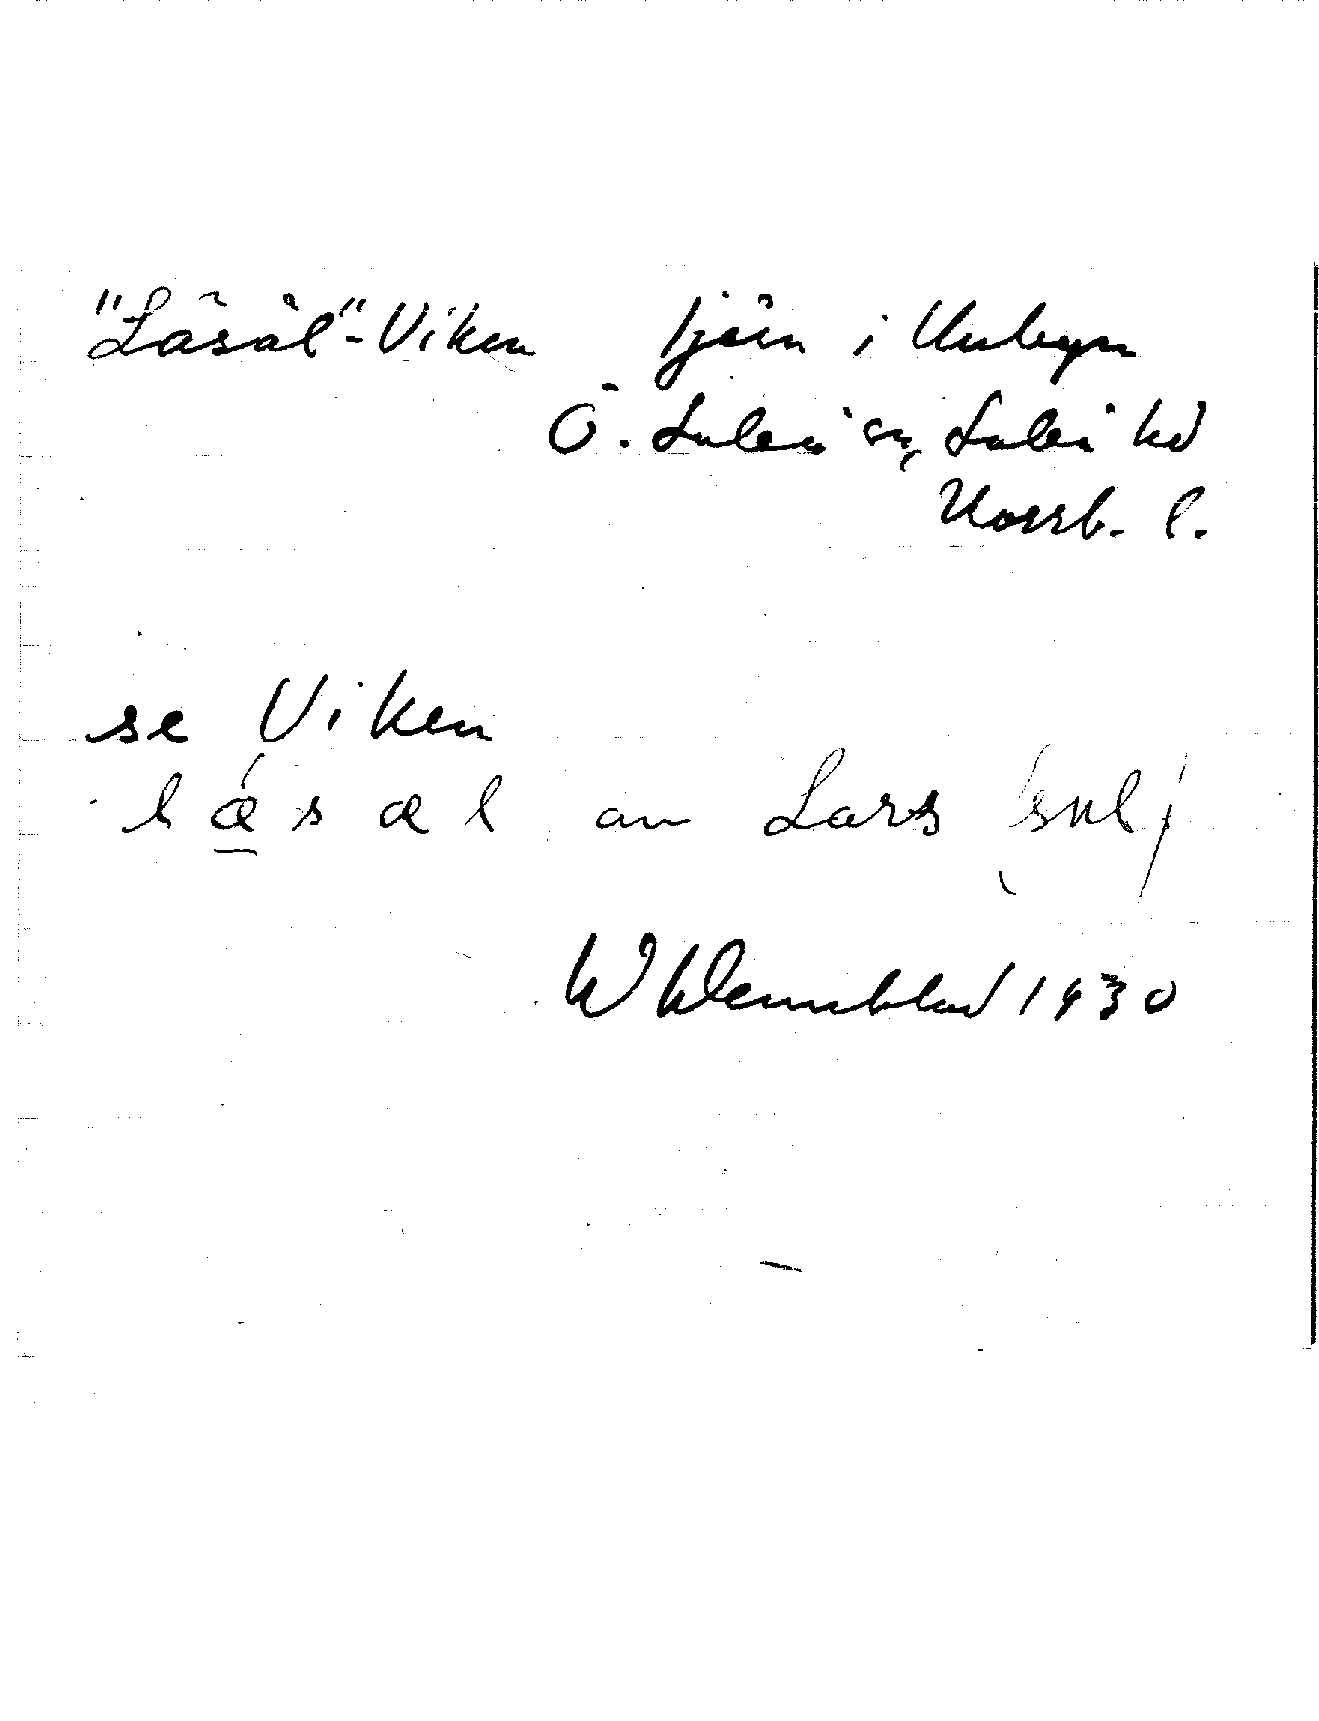 "Låsål"-Viken tjärn i Unbyn
Ö. Luleå sn, Luleå hd
Norrb. l.
se Viken
l æ s æ l av Lars (sul)
W Wennblad 1930